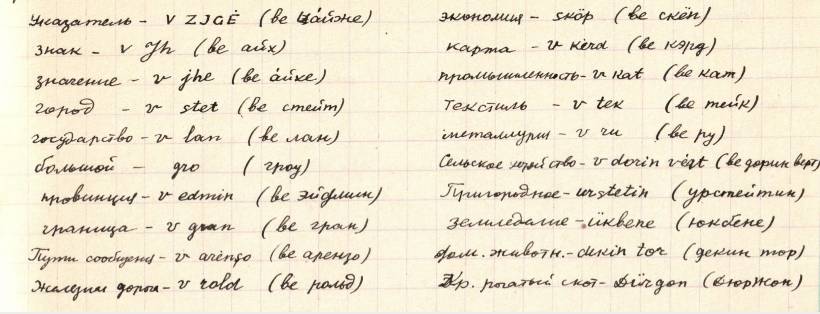 указатель - v ZJGĖ (ве цайже)
знак - v Jh (ве айх)
значение - v jhe (ве айхе)
город - v stet (ве стейт)
государство - v lan (ве лан)
большой - gro (гроу)
провинция - v edmin (ве эйдмин)
граница - v gran (ве гран)
Пути сообщения - v arėnso (ве арензо)
Железная дорога - v rold (ве рольд)
экономия - skör (ве скёп)
карта - v kėrd (ве кэрд)
промышленность - v kat (ве кат)
текстиль - v tek (ве тейк)
металлургия - v ru (ве ру)
Сельское хозяйство - v dorin vert (ве дорин верт)
Пригородное - urstetin (урстейтин)
земледелие - ükvene (юквене)
дом. животн. - dekin tor (декин тор)
Кр. рогатый скот - Dürgon (Дюржон)